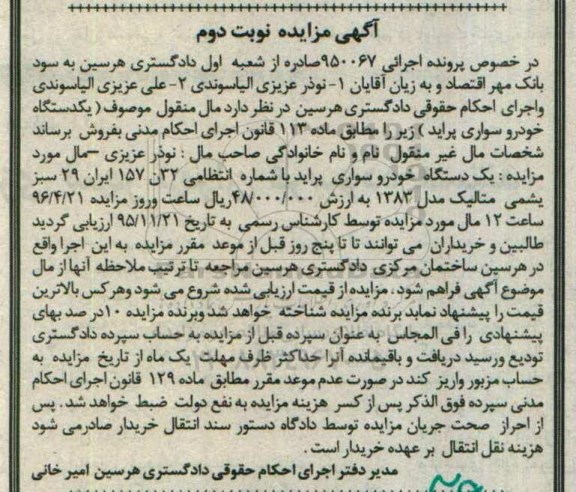 آگهی مزایده نوبت دوم
در خصوص پرونده اجرائی ۹۵۰۰۶۷صادره از شعبه اول دادگستری هرسین به سود
بانک مهر اقتصاد و به زیان آقایان ۱- نوذر عزیزی الیاسوندی ۲- علی عزیزی الیاسوندی
واجرای احکام حقوقی دادگستری هرسین در نظر دارد مال منقول موصوف ( یکدستگاه
خودرو سواری پراید ) زیر را مطابق ماده ۱۱۳ قانون اجرای احکام مدنی بفروش برساند
شخصات مال غیر منقول نام و نام خانوادگی صاحب مال : نوذر عزیزی –مال مورد
مزایده : یک دستگاه خودرو سواری پراید با شماره انتظامی ۳۲ن ۱۵۷ ایران ۲۹ سبز
یشمی متالیک مدل ۱۳۸۳ به ارزش ۴۸/۰۰۰/۰۰۰ریال ساعت وروز مزایده ۹۶/۴/۲۱
ساعت ۱۲ مال مورد مزایده توسط کارشناس رسمی به تاریخ ۹۵/۱۱/۲۱ ارزیابی گردید
طالبین و خریداران می توانند تا تا پنج روز قبل از موعد مقرر مزایده به این اجرا واقع
در هرسین ساختمان مرکزی دادگستری هرسین مراجعه تا ترتیب ملاحظه آنها از مال
موضوع آگهی فراهم شود . مزایده از قیمت ارزیابی شده شروع می شود وهر کس بالاترین
قیمت را پیشنهاد نماید برنده مزایده شناخته خواهد شد وبرنده مزایده ۱۰در صد بهای
پیشنهادی را فی المجاس به عنوان سپرده قبل از مزایده به حساب سپرده دادگستری
تودیع ورسید دریافت و باقیمانده آنرا حداکثر ظرف مهلت یک ماه از تاریخ مزایده به
حساب مزبور واریز کند در صورت عدم موعد مقرر مطابق ماده ۱۲۹ قانون اجرای احکام
مدنی سپرده فوق الذکر پس از کسر هزینه مزایده به نفع دولت ضبط خواهد شد . پس
از احراز صحت جریان مزایده توسط دادگاه دستور سند انتقال خریدار صادر می شود
هزینه نقل انتقال بر عهده خریدار است .
مدیر دفتر اجرای احکام حقوقی دادگستری هرسین امیر خانی